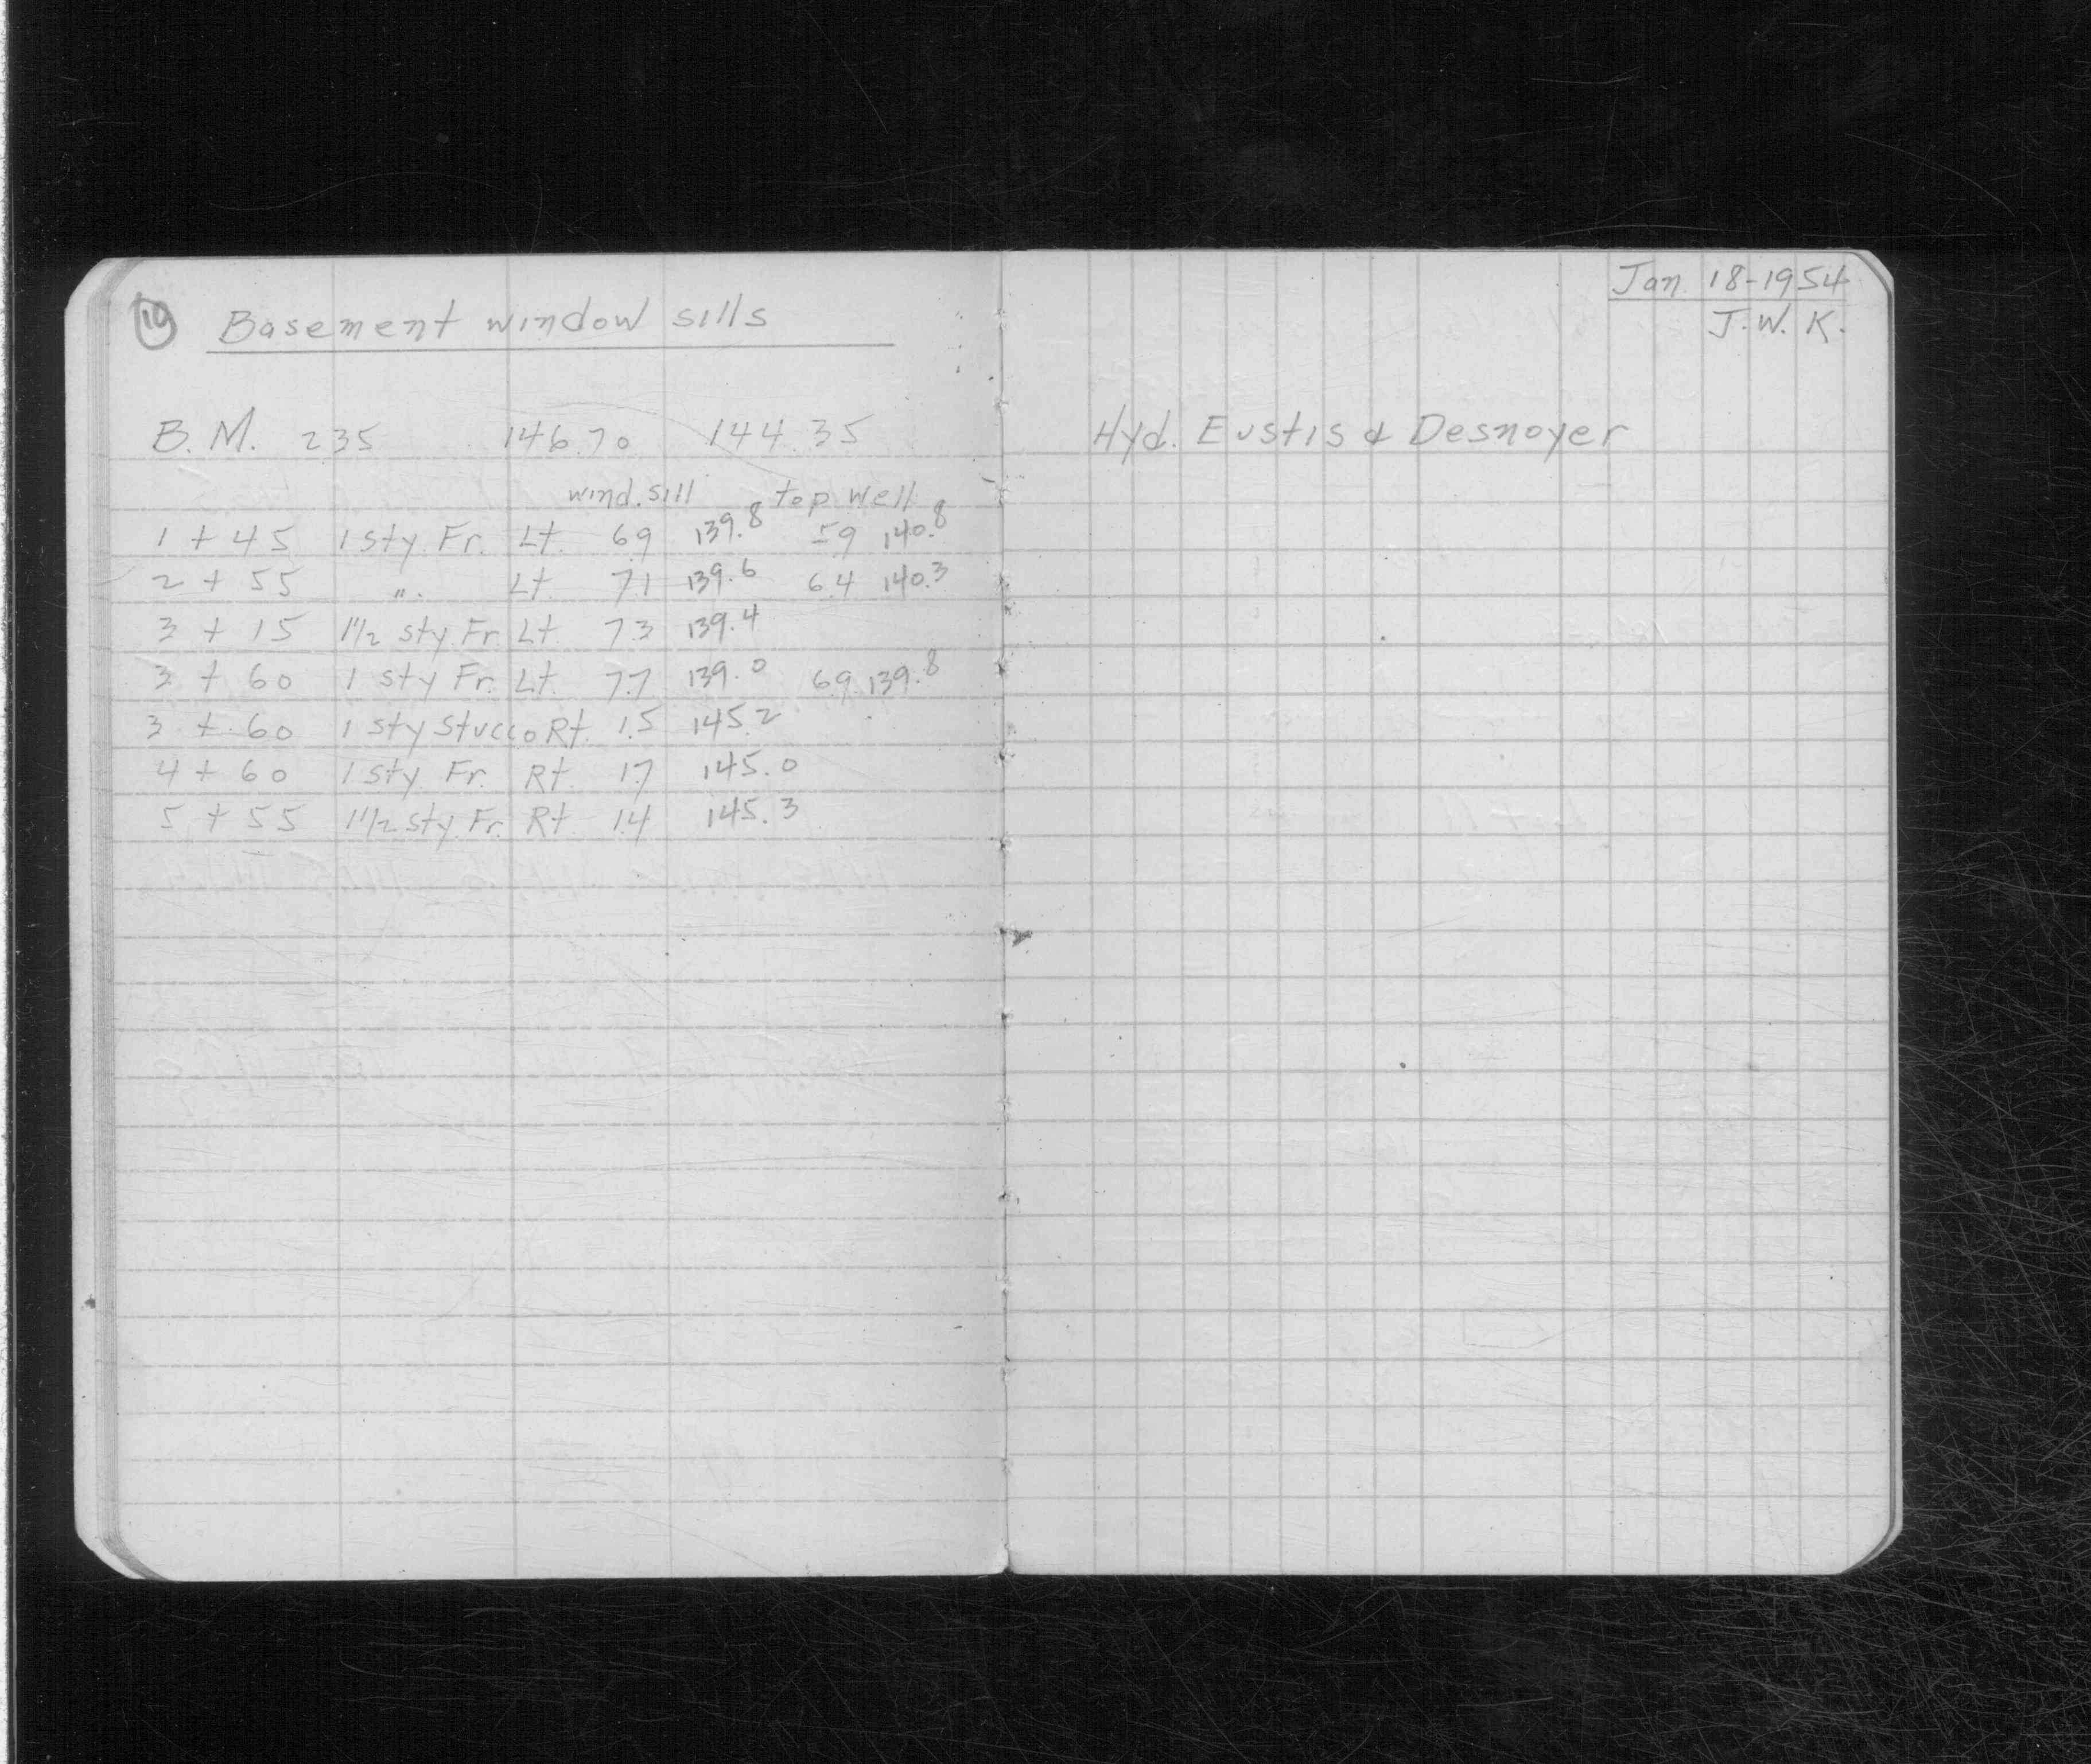 19 Basement window sills
B.M. 2.35 146.70 144.35
wind. sill top well
1 + 45 1 sty. Fr. Lt. 6.9 139.8 5.9 140.8
2 + 55 ". Lt. 7.1 139.6 6.4 140.3
3 + 15 1 1/2 sty. Fr. Lt. 7.3 139.4
3 + 60 1 sty Fr. Lt. 7.7 139.0 6.9 139.8
3 + 60 1 sty Stucco Rt. 1.5 145.2
4 + 60 1 sty. Fr. Rt. 1.7 145.0
5 + 55 1 1/2 sty. Fr. Rt. 1.4 145.3
Jan. 18-1954
J. W. K.
Hyd. Eustis & Desnoyer